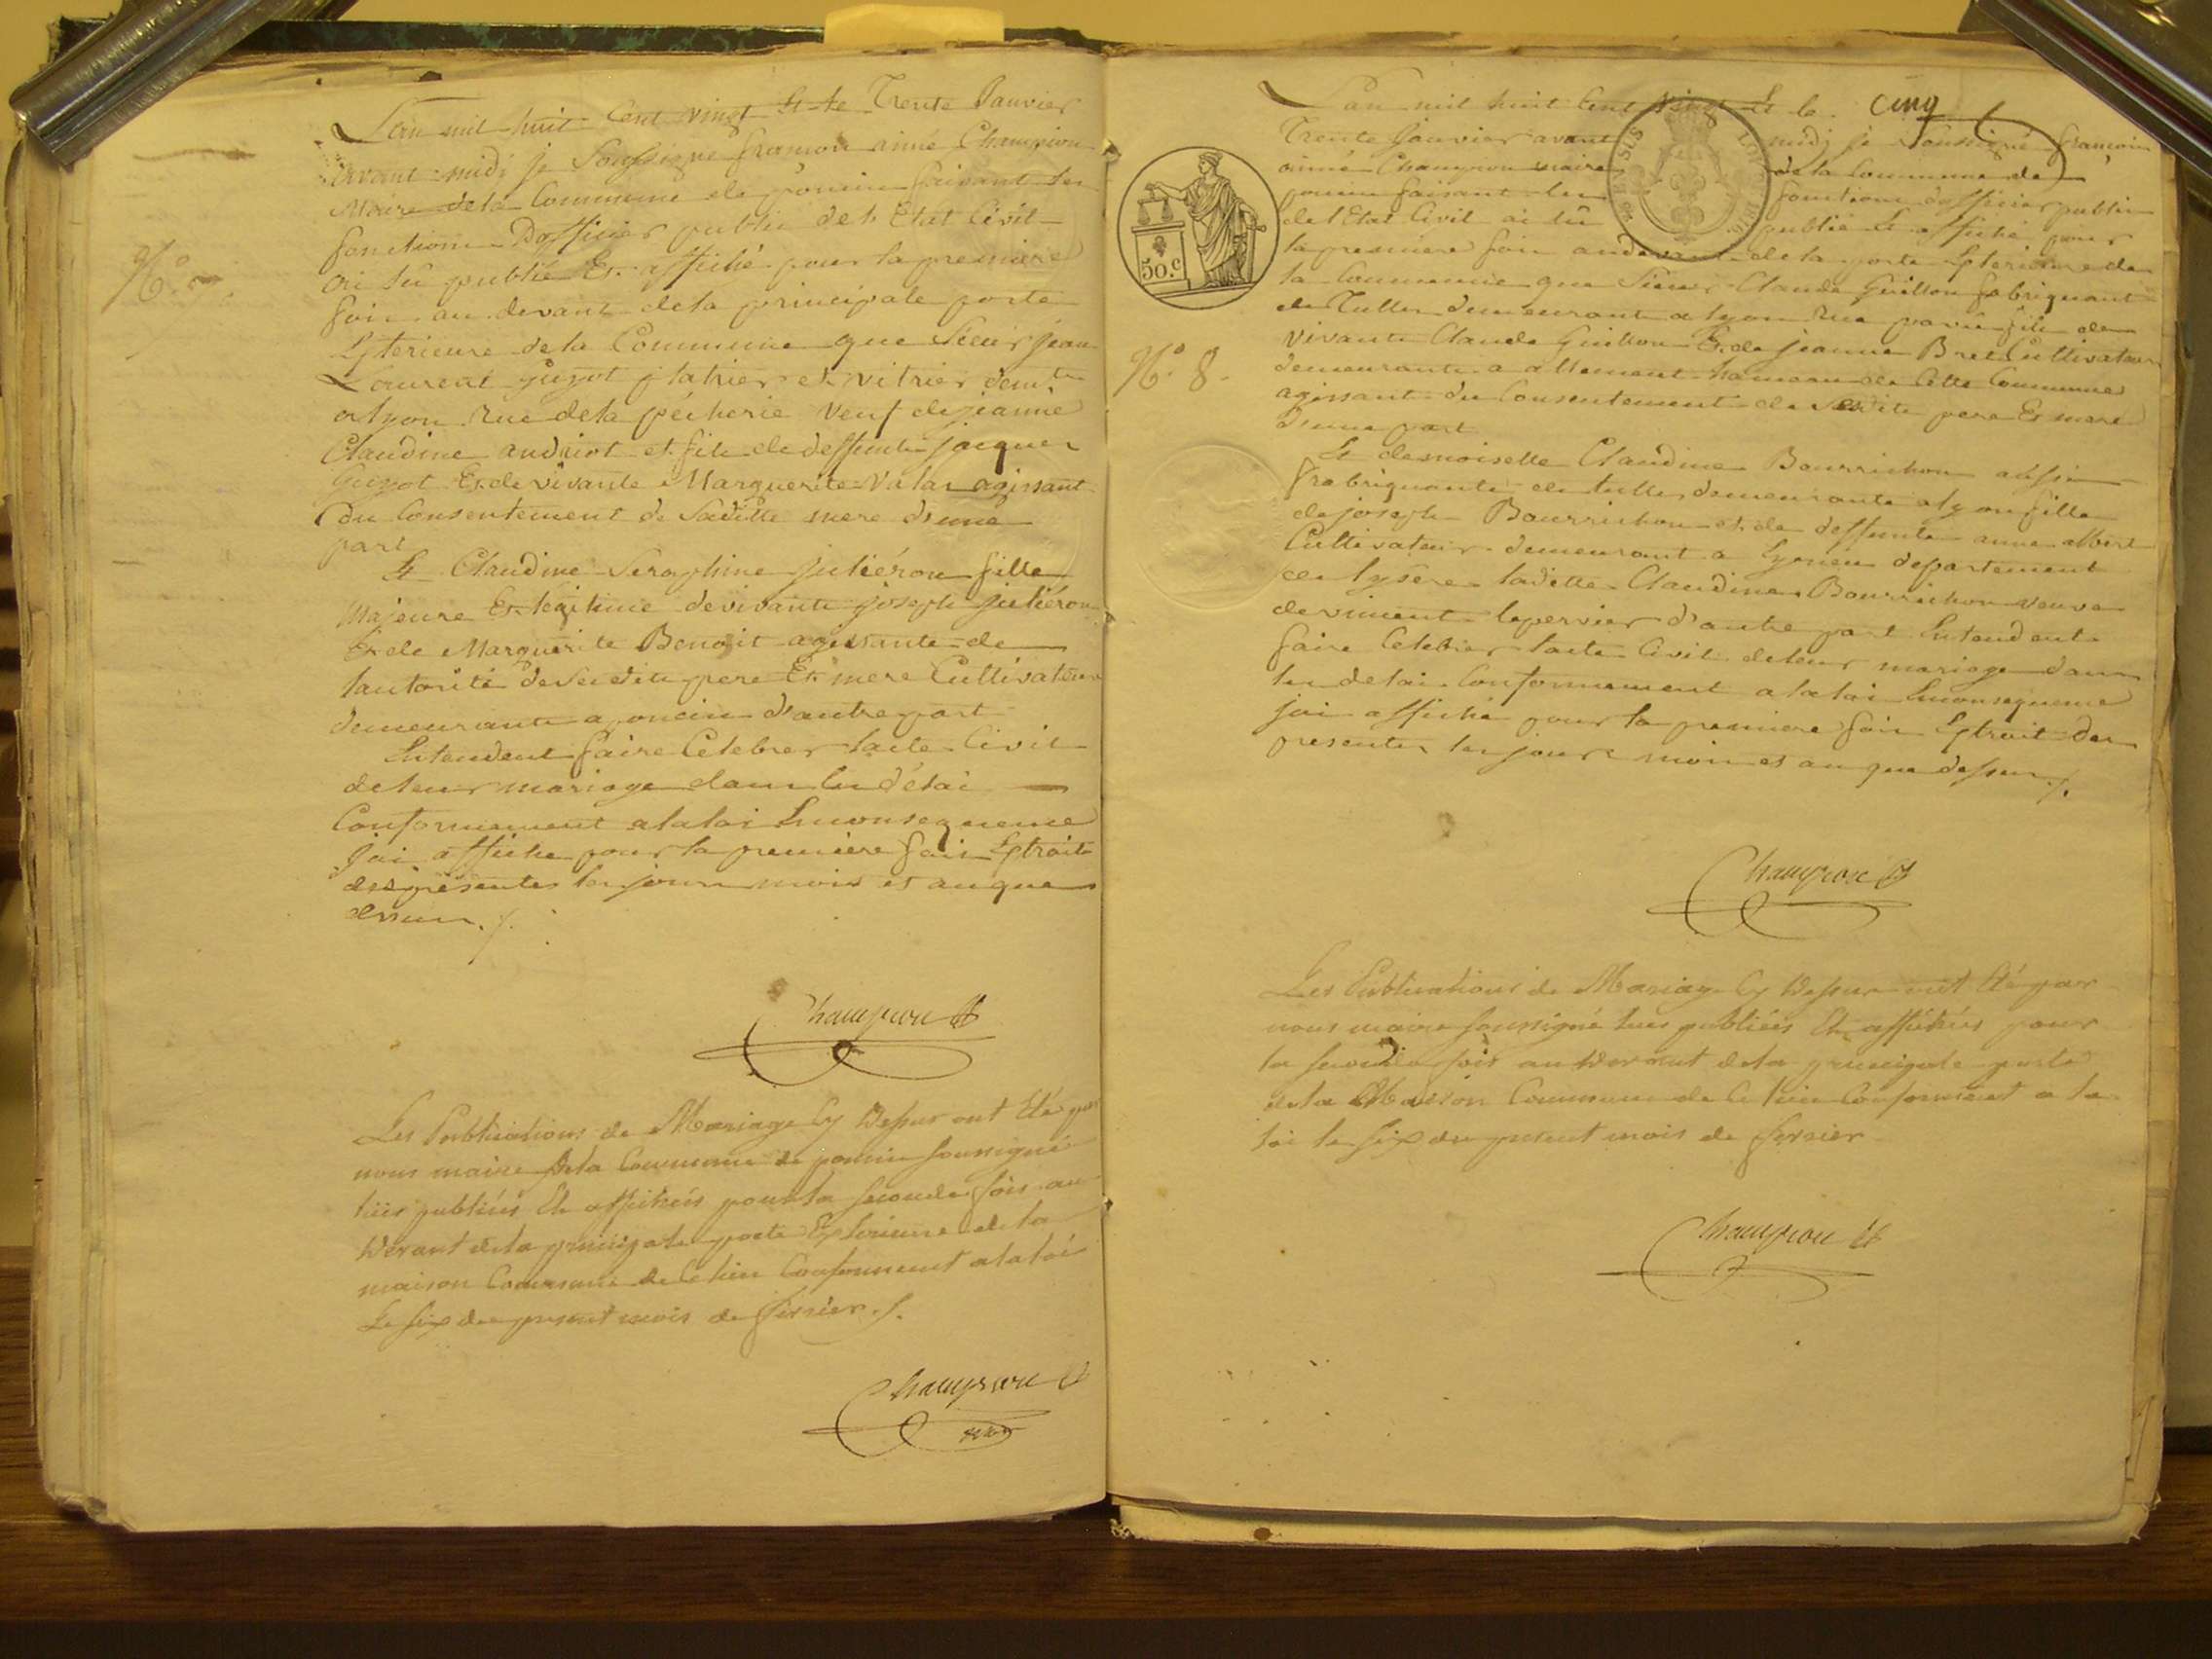 L'an mil huit Cent vingt Et le Trente Janvier
avant midi je Soussigné françois aimé Champion
Maire de la Commune de poncin faisant les
fonctions D'officier public de l'Etat Civil
ai lû publié Et affiché pour la premiere
fois au devant de la principale porte
Exterieure de la Commune que Sieur jean
Laurent guyot platrier et vitrier demt
a lyon rue de la pécherie veuf de jeanne
Claudine andriot et fils de deffunt jacques
Guyot Et de vivante Marguerite agissant
du Consentement de Saditte mere d'une
part
Et Claudine Seraphine juliéron fille
Majeure Et legitime de vivants joseph juliéron
Et de Marguerite Benoit agissante de
lautorité de Sesdits pere Et mere Cultivateurs
demeurants a poncin d'autre part
Entendent faire Celebrer lacte Civil
de leur mariage dans les délai
Conformement a la loi Enconsequence
Jai affiché pour la premiere fois Extrait
des présentes les jour mois et an que
dessus ./.
Champion
Les Publications de Mariage Cy Dessus ont Eté par
nous maire de la Commune de poncin soussigné
lües publiées Et affichées pour la seconde fois au
Devant de la principale porte Exterieure de la
maison Commune de Ce lieu Conformement a la loi
Le six du présent mois de fevrier ./.
Champion
N.° 7.
cinq
L'an mil huit Cent vingt Et le
Trente Janvier avant midi je Soussigné françois
aimé Champion maire de la Commune de
poncin faisant les fonctions d'officier public
de l'Etat Civil ai lû publié Et affiché pour
la premiere fois audevant de la porte Exterieure de
la Commune que Sieur Claude Guillon fabriquant
de Tulles demeurant a lyon Rue fils de
vivants Claude Guillon Et de jeanne Bret Cultivateurs
demeurants a allement hameau de Cette Commune
agissant du Consentement de Sesdits pere Et mere
d'une part
Et demoiselle Claudine Bourrichon aussi
frabriquante de tulles demeurante a lyon fille
de joseph Bourrichon et de deffunte anne albert
Cultivateur demeurant a departement
de lysere laditte Claudine Bourrichon veuve
de vincent lepervier d'autre part Entendent
faire Celebrer lacte Civil de leur mariage dans
les delai Conformement a la loi Enconsequence
jai affiché pour la premiere fois Extrait des
presentes les jour mois et an que dessus ./.
Champion
Les Publications de Mariage Cy Dessus ont Eté par
nous maire soussigné lues publiées Et affichées pour
la seconde fois au Devant de la principale porte
de la Maison Commune de Ce lieu Conformement a la
loi le six du present mois de fevrier
Champion
N.° 8.
50.c